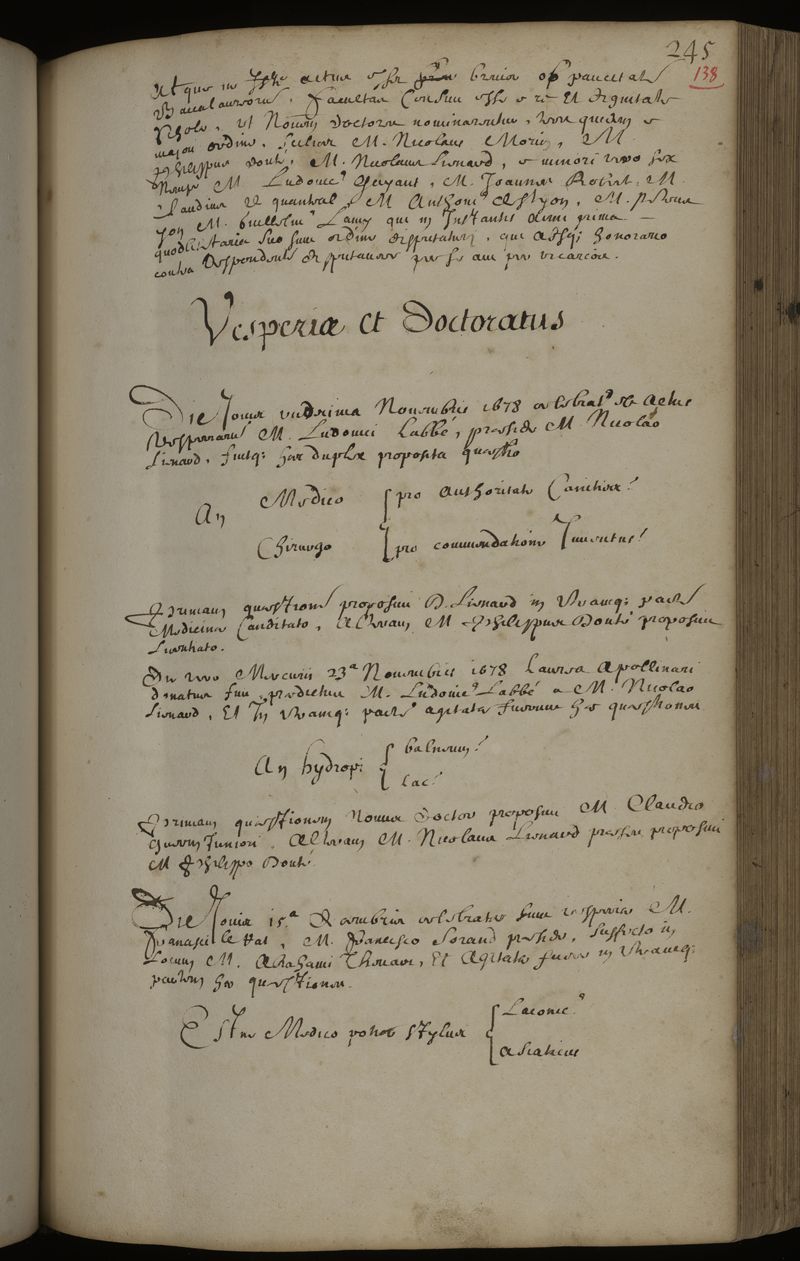 245
138
Utque in actus brevior ob paucitatem
Baccalaureorum, facultas Censuit esse e re Et dignitate
Schole, ut Novem doctores nominarentur, tres quidem e
majori ordine, scilicet M. Nicolaus Morin, M.
Philippus Douté, M. Nicolaus Lienard, e minori vero sex
M. Ludovic⁹ Gayant, M. Joannes Robert, M.
Claudius M Anthoni⁹ M. Petrus
yon M. Guillelm⁹ Lamy qui in Instantis anni prima
quodlibetaria suo quisque ordine disputaturi, qui absq; honorario
contra Respondentes disputaturi per se aut per vicarios.
Vesperiæ et Doctoratus
Die Jovis undecima Novembris 1678 celebrat⁹ est Actus
Vesperiarum M. Ludovici Labbé, præside M. Nicolao
Lienard, fuitq; hæc duplex proposita quæstio
An Medico pro Authoritate Canities?
Chirurgo pro commendatione Juventus?
Primam quæstionem proposuit D. Lienard in Utramq; partem
Medicinæ Candidato, Alteram M Philippus Douté proposuit
Licentiato.
Die vero Mercurii 23ª Novembris 1678 Laurea Apollinari
donatus fuit prædictus M. Ludovic⁹ Labbé a M. Nicolao
Lienard, Et In Utramq; partem agitatæ fuerunt hæ quæstiones
An hydropi balneum?
Lac?
Primam quæstionem Novus Doctor proposuit M. Claudio
Quartier Juniori. Alteram M. Nicolaus Lienard præses proposuit
M Philippo Douté.
Die Jovis 15ª Decembris celebratæ sunt vesperiæ M.
Francisci le Rat, M. Francisco Lorand præside, suffecto in
Locum M. Abrahami Thouart, Et Agitatæ fuere in Utramq;
partem hæ quæstiones.
Estne Medico potior stylus Laconic⁹
asiaticus